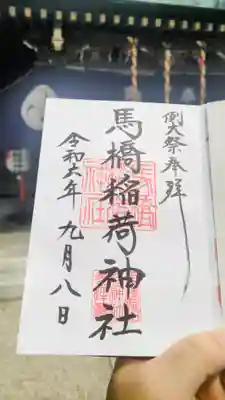 例大祭奉拝
馬橋稲荷神社
令和六年九月八日